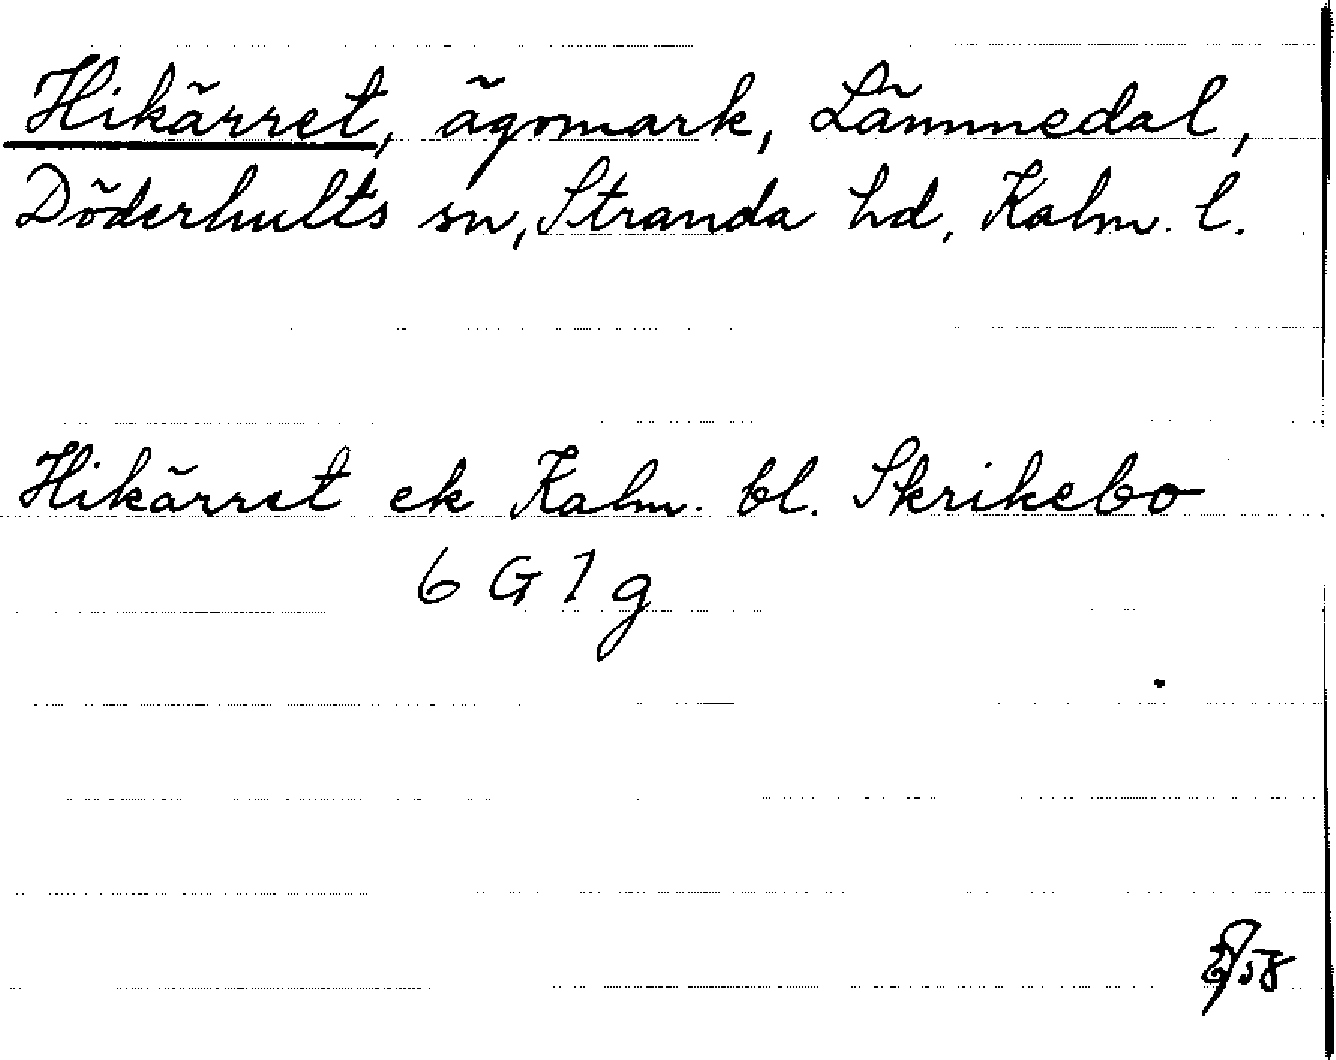 Hikärret, ägomark, Lämmedal,
Döderhults sn, Stranda hd, Kalm. l.
Hikärret ek Kalm. bl. Skrikebo
6 G 1 g
/58